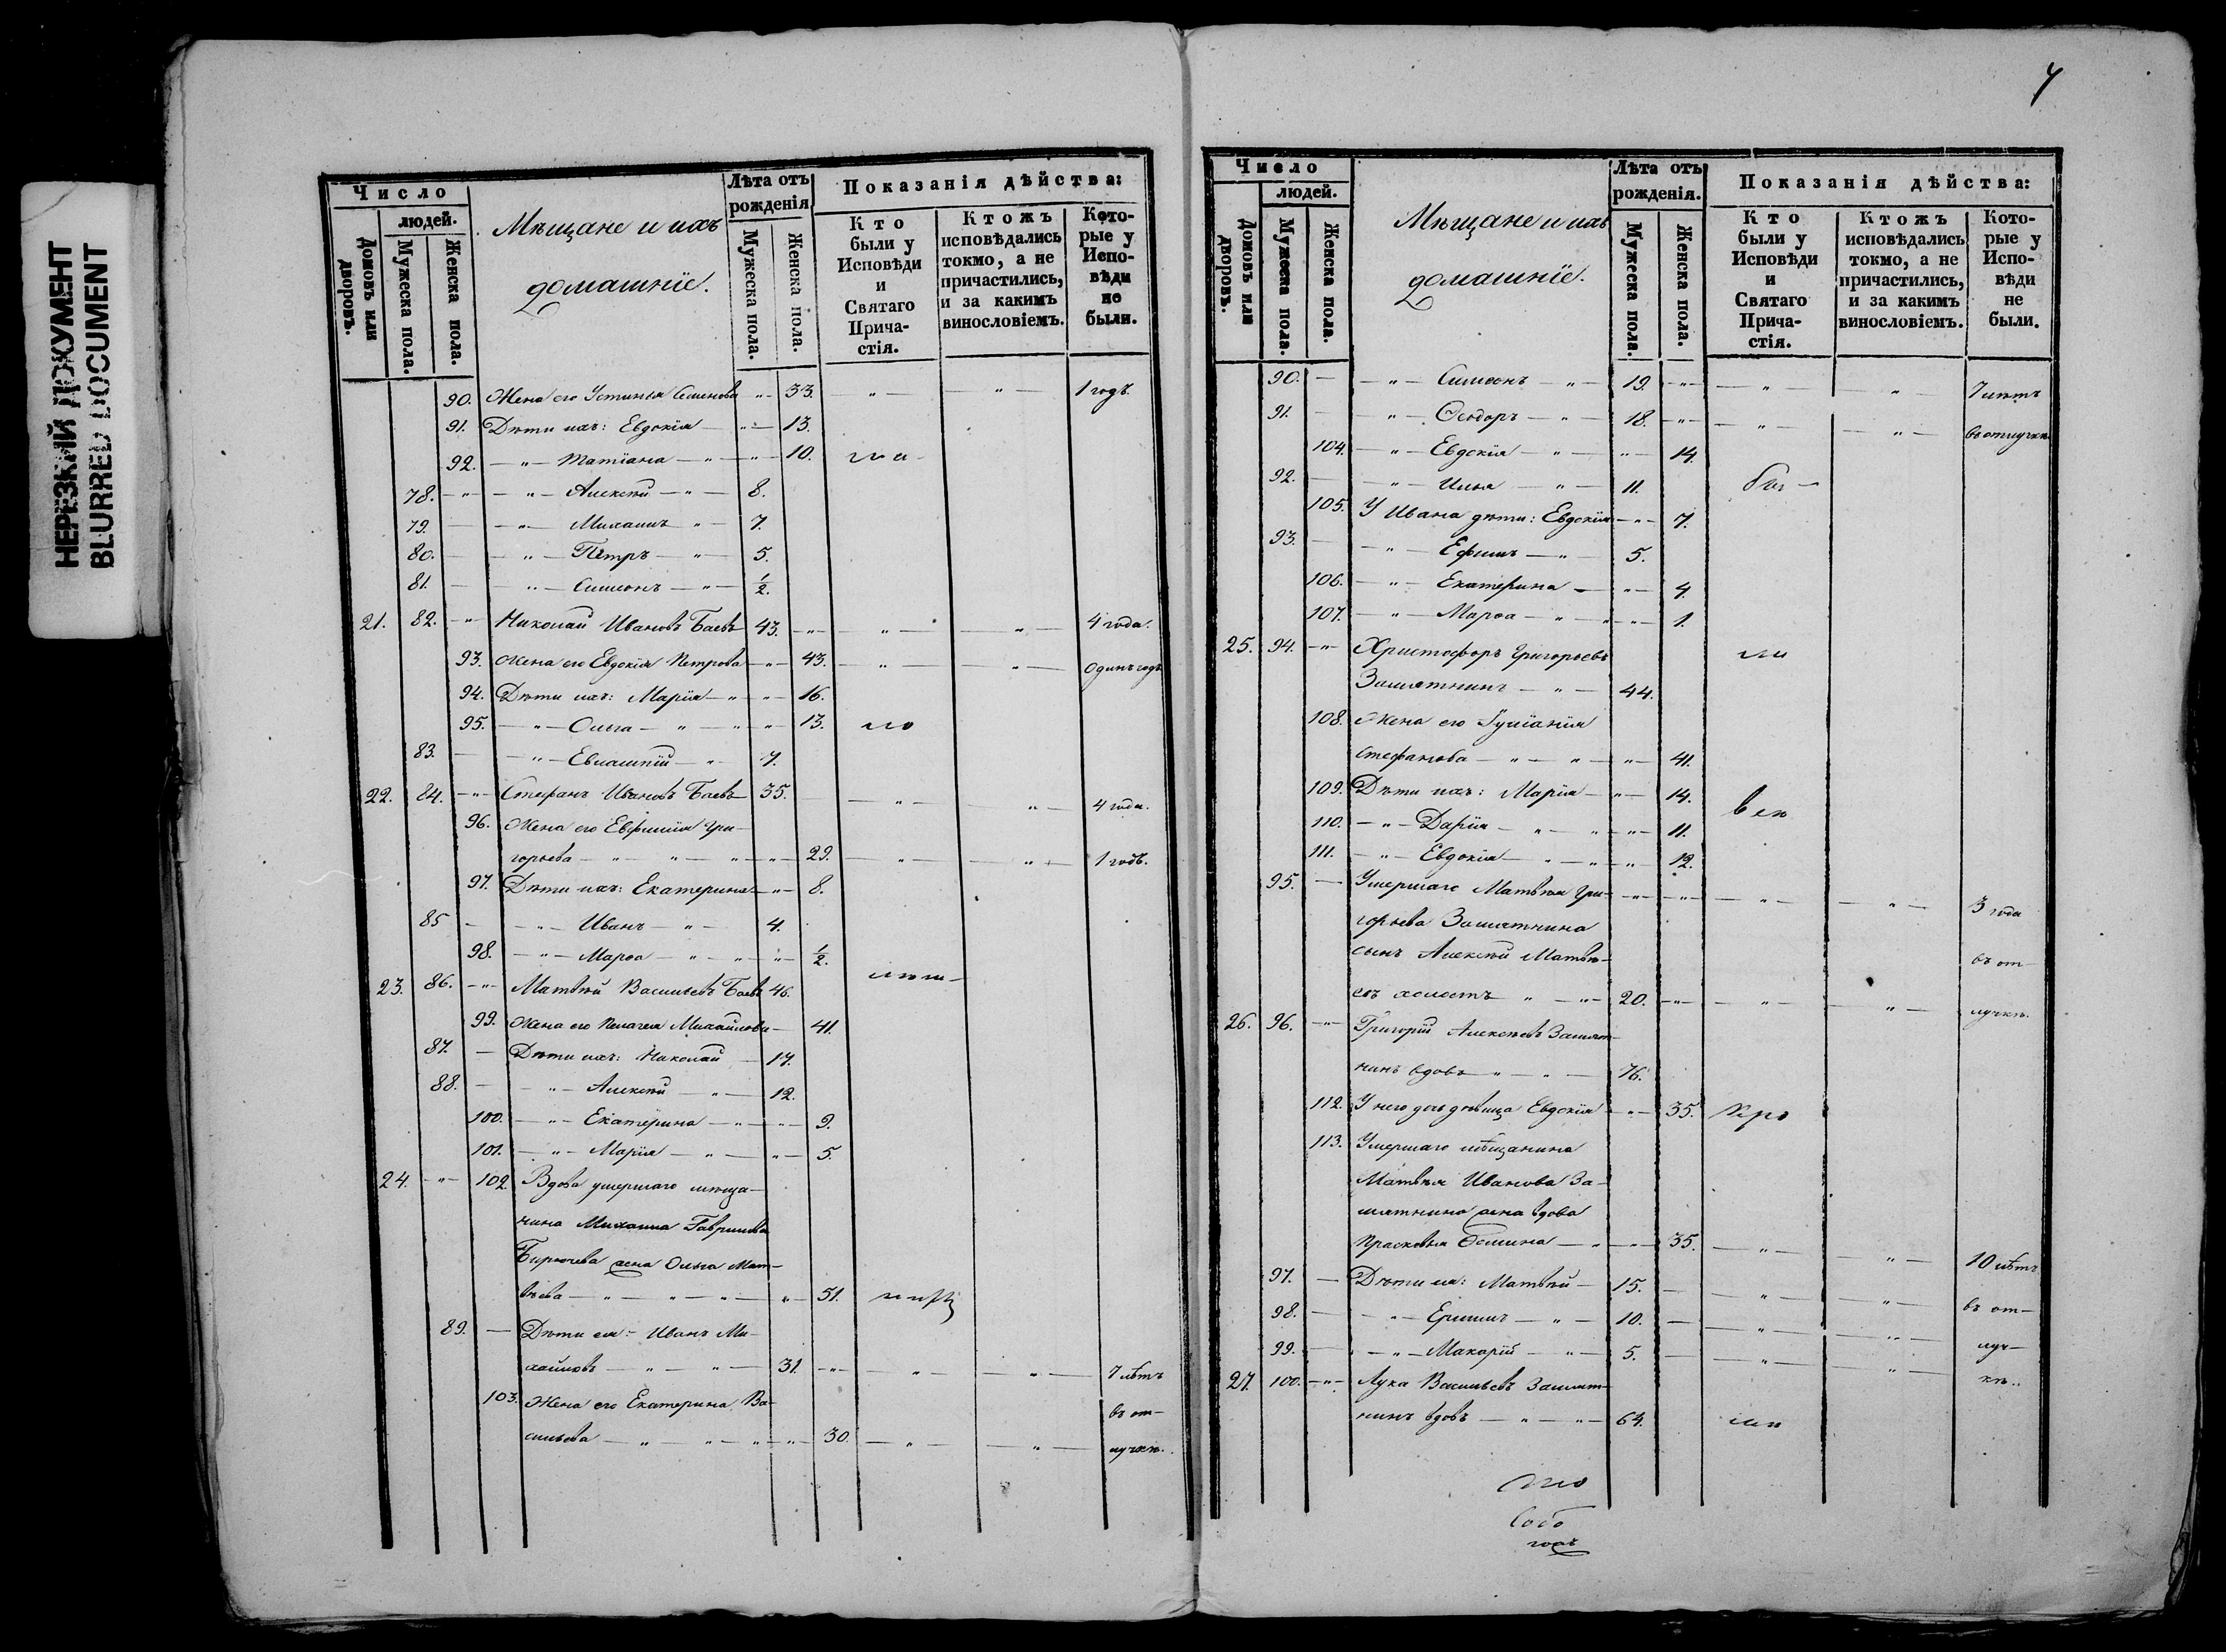 НЕРЕЗКИЙ ДОКУМЕНТ
BLURRED DOCUMENT
Число
людей.
Домовъ или дворовъ.
Мужеска пола.
Женска пола.
Мѣщане и ихъ
домашніе.
Лѣта отъ
рожденія
Мужеска пола.
Женска пола.
Показанія дѣйства:
Кто
были у
Исповѣди
и
Святаго
Прича-
стія.
Ктожъ
исповѣдались
токмо, а не
причастились,
и за какимъ
винословіемъ.
Кото-
рые у
Испо-
вѣди
не
были.
90. Жена его Устинья Семенова " 33. " " 1 годъ.
91. Дѣти ихъ: Евдокія " 13.
92. " Татіана " " 10.
78. " " Алексѣй " 8.
79. " Михаилъ " 7.
80. " Петръ " 5.
81. " Симеонъ " 1/2.
21. 82. " Николай Ивановъ Баевъ 43. " " " 4 года.
93. Жена его Евдокія Петрова " 43. " " одинъ годъ
94. Дѣти ихъ: Марія " " 16.
95. " Ольга " " " 13.
83. " Евлампій " 7.
22. 84. " Стефанъ Ивановъ Баевъ 35. " " 4 года.
96. Жена его Евфимія Гри-
горьева " " " " 29. " " 1 годъ.
97. Дѣти ихъ: Екатерина " 8.
85 " Иванъ " 4.
98. " Марѳа " " " 1/2.
23. 86. " Матвѣй Васильевъ Баевъ 46.
99. Жена его Пелагея Михайлова 41.
87. Дѣти ихъ: Николай 17.
88. " Алексѣй " 12.
100. " Екатерина " " 9.
101. " Марія " " 5.
24. " 102. Вдова умершаго мѣща-
нина Михаила Гаврилова
Бирючева жена Ольга Мат-
вѣева " " " " 51.
89. Дѣти ея: Иванъ Ми-
хайловъ " " 31. " " " 7 лѣтъ
103. Жена его Екатерина Ва-
въ от-
сильева " " " " 30. " " лучкѣ.
7
Число
людей.
Домовъ или дворовъ.
Мужеска пола.
Женска пола.
Мѣщане и ихъ
домашніе.
Лѣта отъ
рожденія.
Мужеска пола.
Женска пола.
Показанія дѣйства:
Кто
были у
Исповѣди
и
Святаго
Прича-
стія.
Ктожъ
исповѣдались
токмо, а не
причастились,
и за какимъ
винословіемъ.
Кото-
рые у
Испо-
вѣди
не
были.
90. " Симеонъ " 19. " " " 7 лѣтъ
91. " Ѳеодоръ " 18. " " " въ отлучкѣ
104. " Евдокія " " 14.
92. " Илья " 11.
105. У Ивана дѣти: Евдокія " 7.
93. " Ефимъ " 5.
106. " Екатерина " 4.
107. " Марѳа " " " 1.
25. 94. " Христофоръ Григорьевъ
Замятнинъ " 44.
108. Жена его Іуліанія
Стефанова " " " 41.
109. Дѣти ихъ: Марія " 14.
110. " Дарія " " " 11.
111. " Евдокія " " " 12.
95. Умершаго Матвѣя Гри- " " " " 3 года
горьева Замятнина
сынъ Алексѣй Матвѣ-
въ от-
евъ холостъ " " 20. " " " лучкѣ.
26. 96. " Григорій Алексѣевъ Замят-
нинъ вдовъ " " 76.
112. У него дочь дѣвица Евдокія " 35.
113. Умершаго мѣщанина
Матвѣя Иванова За-
мятнина жена вдова
Прасковья " " 35. " " 10 лѣтъ
97. Дѣти ея: Матвѣй 15. " " въ от-
98. " " 10. " " луч-
99. " Макарій " 5. " " кѣ.
27. 100. " Лука Васильевъ Замят-
нинъ вдовъ " " 64.